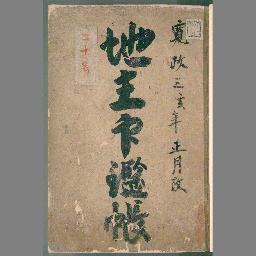 寛政三亥年正月改
地主印鑑帳
二十番